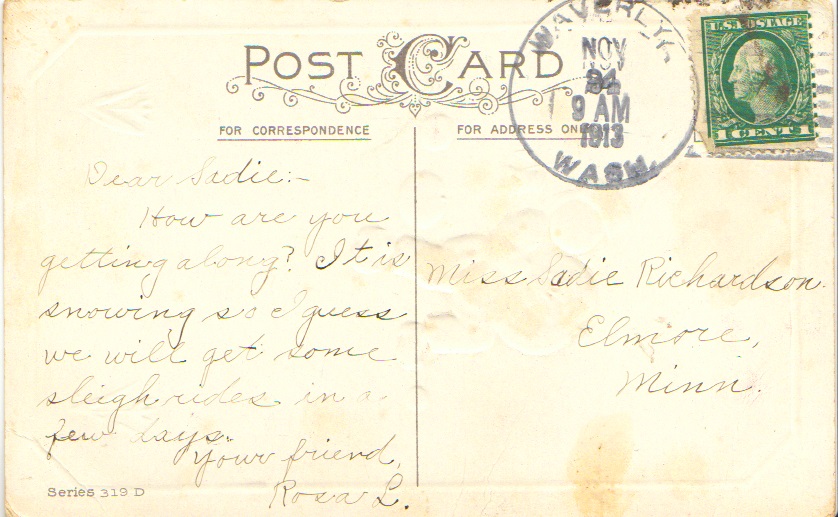 POST CARD
FOR CORRESPONDENCE
FOR ADDRESS ON
WAVERLY
NOV
9 AM
1913
WASH.
U.S. POSTAGE
1 CENT 1
Dear Sadie:-
How are you
getting along? It is
snowing so I guess
we will get some
sleigh rides in a
few days.
Your friend,
Rosa L.
Miss Sadie Richardson.
Elmore,
Minn.
Series 319 D